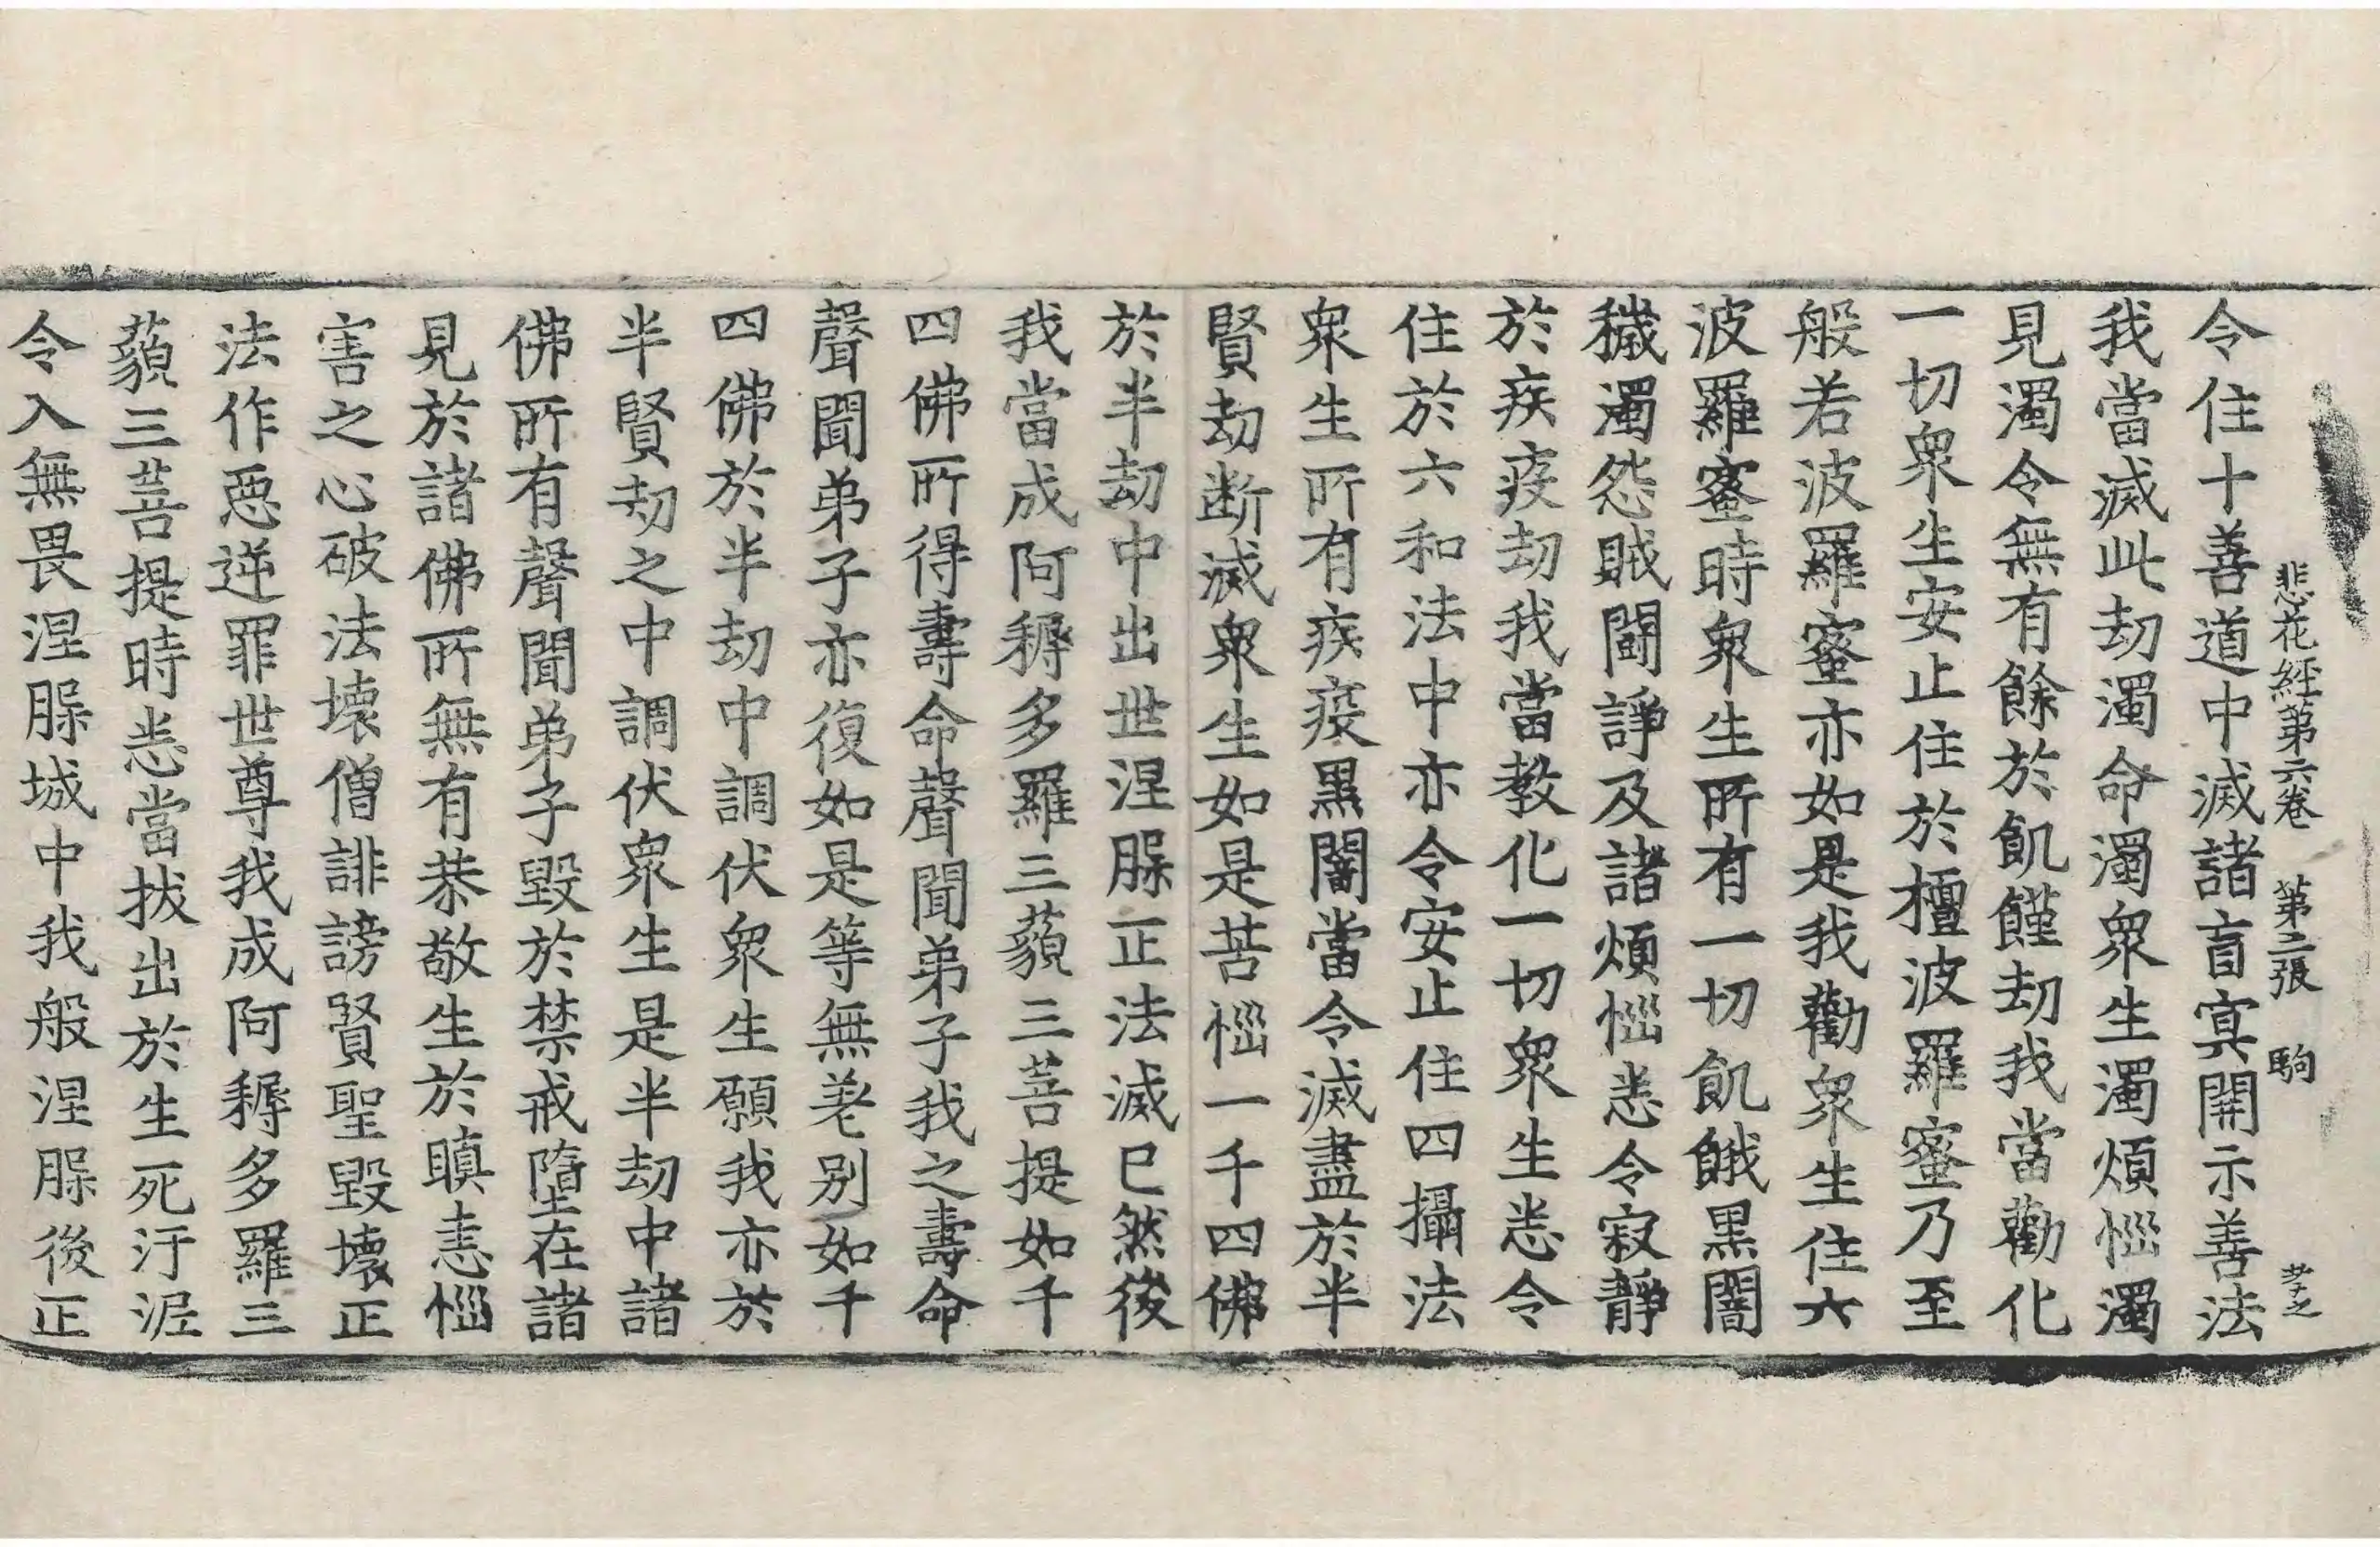 悲花經第六卷 第二張 駒
令住十善道中滅諸盲冥開示善法
我當滅此劫濁命濁眾生濁煩惱濁
見濁令無有餘於飢饉劫我當勸化
一切眾生安止住於檀波羅蜜乃至
般若波羅蜜亦如是我勸眾生住六
波羅蜜時眾生所有一切飢餓黑闇
穢濁怨賊鬪諍及諸煩惱悉令寂靜
於疾疫劫我當教化一切眾生悉令
住於六和法中亦令安止住四攝法
眾生所有疾疫黑闇當令滅盡於半
賢劫断滅眾生如是苦惱一千四佛
於半劫中出世涅槃正法滅已然後
我當成阿耨多羅三藐三菩提如千
四佛所得壽命聲聞弟子我之壽命
聲聞弟子亦復如是等無差別如千
四佛於半劫中調伏眾生願我亦於
半賢劫之中調伏眾生是半劫中諸
佛所有聲聞弟子毀於禁戒墮在諸
見於諸佛所無有恭敬生於瞋恚惱
害之心破法壞僧誹謗賢聖毀壞正
法作惡逆罪世尊我成阿耨多羅三
藐三菩提時悉當拔出於生死汙泥
令入無畏涅槃城中我般涅槃後正